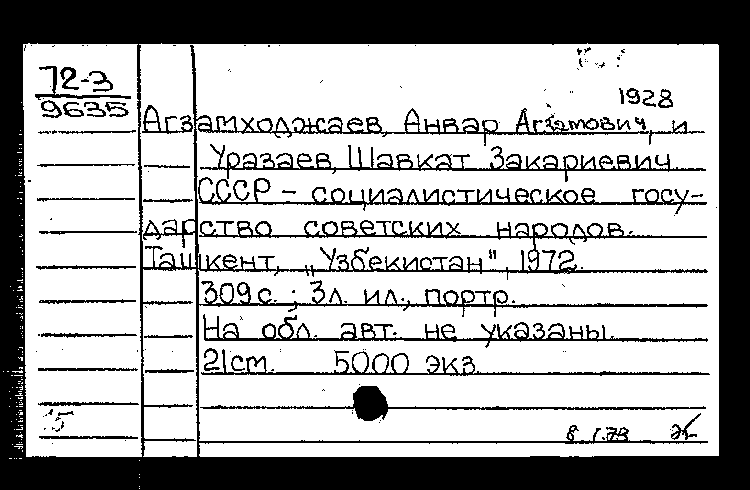 72-3
9635
1928
Агзамходжаев, Анвар Агзамович, и
Уразаев, Шавкат Закариевич.
СССР – социалистическое госу-
дарство советских народов.
Ташкент, „Узбекистан", 1972.
309 с.; 3 л. ил., портр.
На обл. авт. не указаны.
21 см. 5000 экз.
15
8.I.73